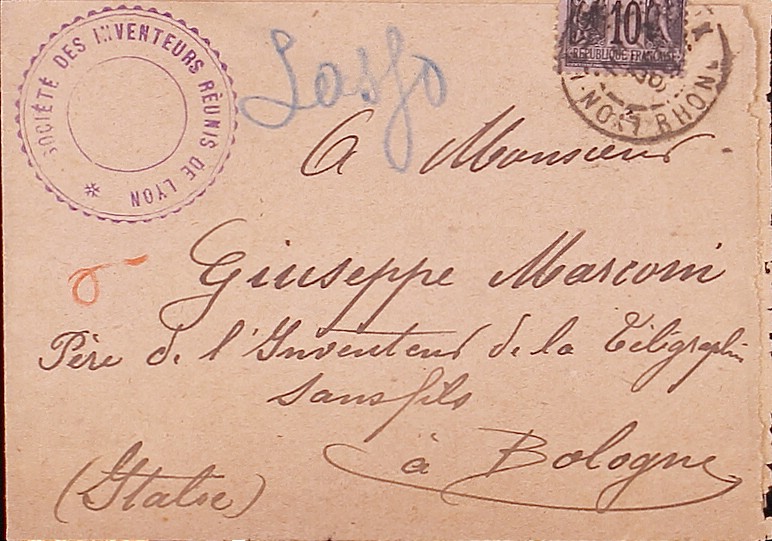 SOCIÉTÉ DES INVENTEURS RÉUNIS DE LYON *
10
RÉPUBLIQUE FRANÇAISE
LYON RHONE
Sasso
A Monsieur
Giuseppe Marconi
Père de l'Inventeur de la Télégraphie
sans fils
à Bologne
(Italie)